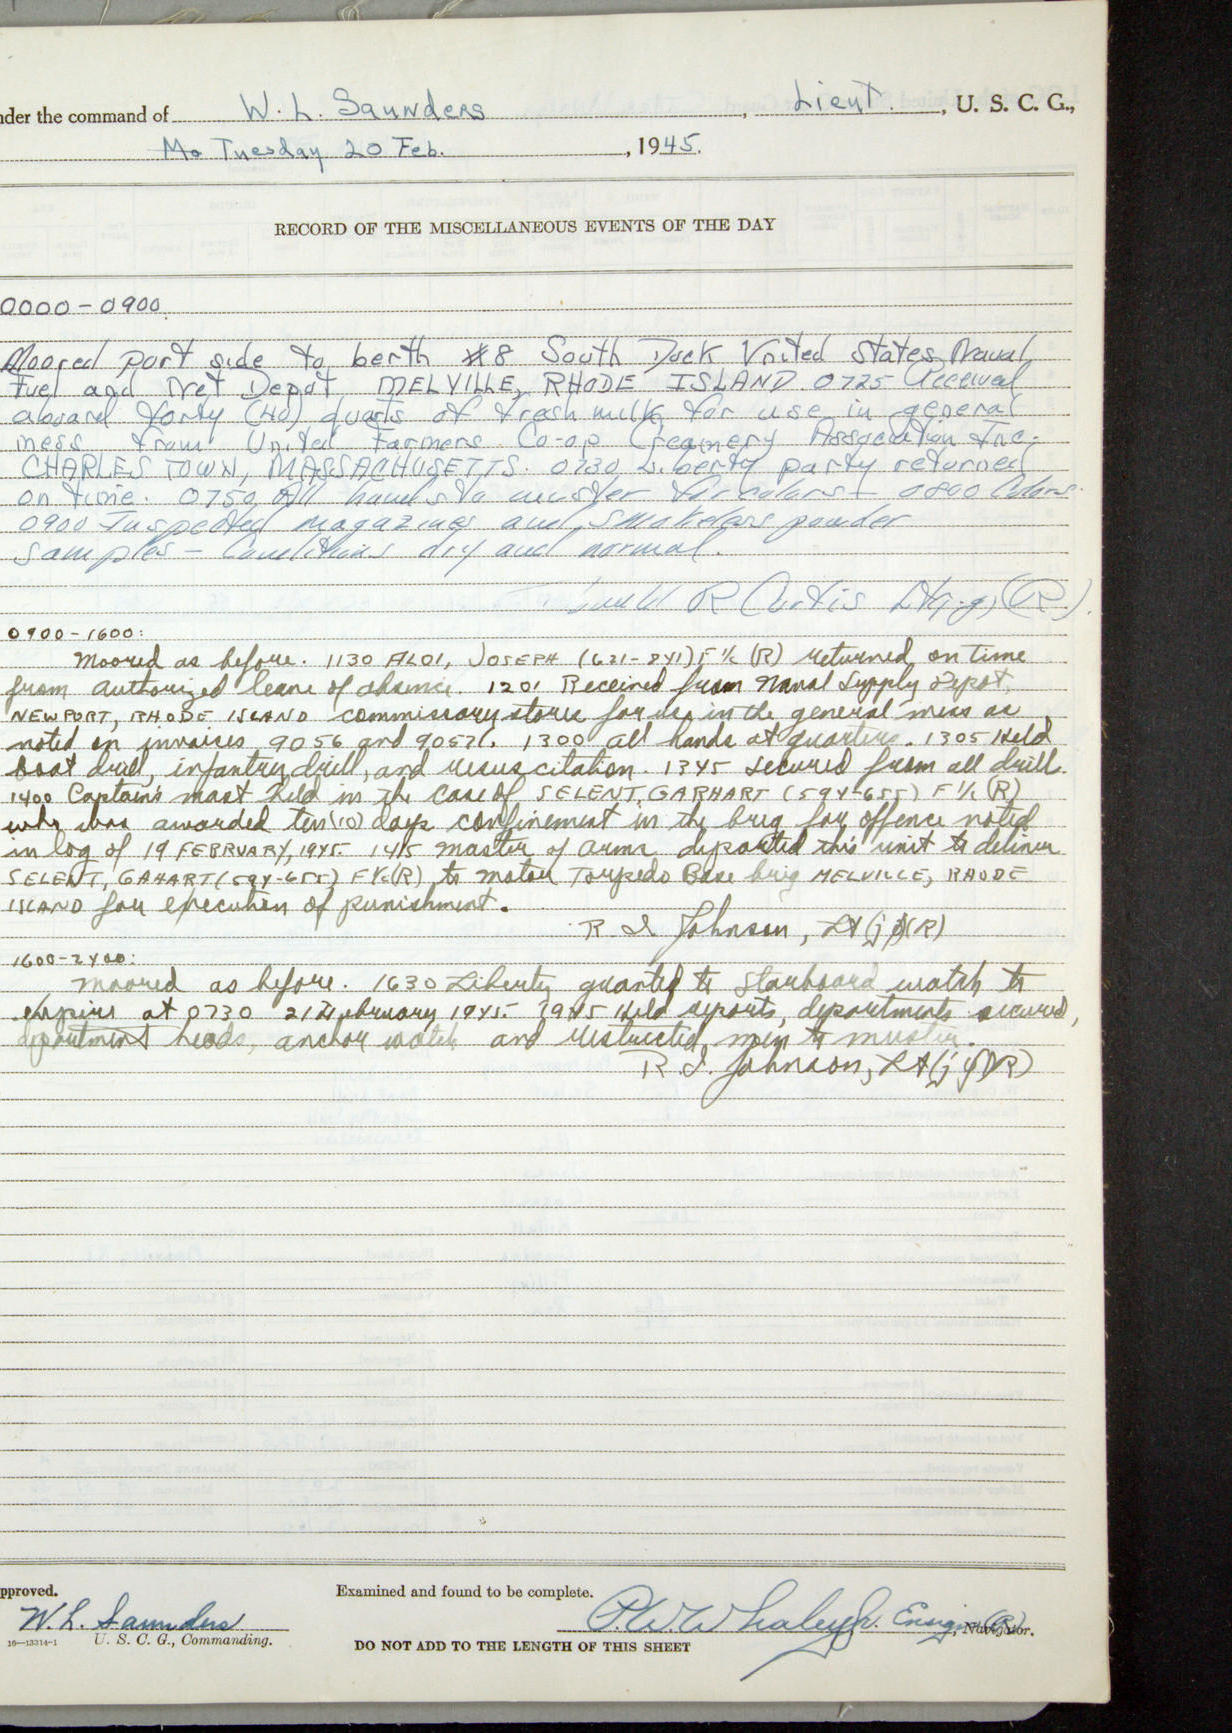 nder the command of W. L. Saunders, Lieut., U. S. C. G.,
Mo Tuesday 20 Feb., 1945.
RECORD OF THE MISCELLANEOUS EVENTS OF THE DAY
0000-0900
Moored port side to berth #8 South Dock United States Naval
Fuel and Net Depot MELVILLE, RHODE ISLAND. 0725 Received
aboard forty (40) quarts of fresh milk for use in general
mess from United Farmers Co-op Creamery Association Inc.
CHARLESTOWN, MASSACHUSETTS. 0730 Liberty party returned
on time. 0750 All hands to muster for colors - 0800 Colors.
0900 Inspected magazines and smokeless powder
samples - Conditions dry and normal.
R Curtis Lt(j.g.)(R).
0900-1600:
Moored as before. 1130 ALOI, JOSEPH (621-241) F 1/c (R) returned on time
from authorized leave of absence. 1201 Received from Naval Supply Depot,
NEWPORT, RHODE ISLAND commissary stores for use in the general mess as
noted on invoices 9056 and 9057. 1300 all hands at quarters. 1305 Held
boat drill, infantry drill, and resuscitation. 1345 secured from all drill.
1400 Captain's mast held in the case of SELENT, GARHART (594-655) F 1/c (R)
who was awarded ten (10) days confinement in the brig for offence noted
in log of 19 FEBRUARY, 1945. 1415 master of arms departed this unit to deliver
SELENT, GAHART (594-655) F 1/c (R) to motor Torpedo Base brig MELVILLE, RHODE
ISLAND for execution of punishment.
R. I. Johnson, Lt(jg)(R)
1600-2400:
Moored as before. 1630 Liberty granted to starboard watch to
expire at 0730 21 February 1945. 1945 Held reports, departments secured,
department heads, anchor watch and restricted men to muster.
R. I. Johnson, Lt(jg)(R)
pproved.
Examined and found to be complete.
W. L. Saunders
U. S. C. G., Commanding.
P. W. Whaley Jr. Ensign (R), Navigator.
16—13314-1
DO NOT ADD TO THE LENGTH OF THIS SHEET